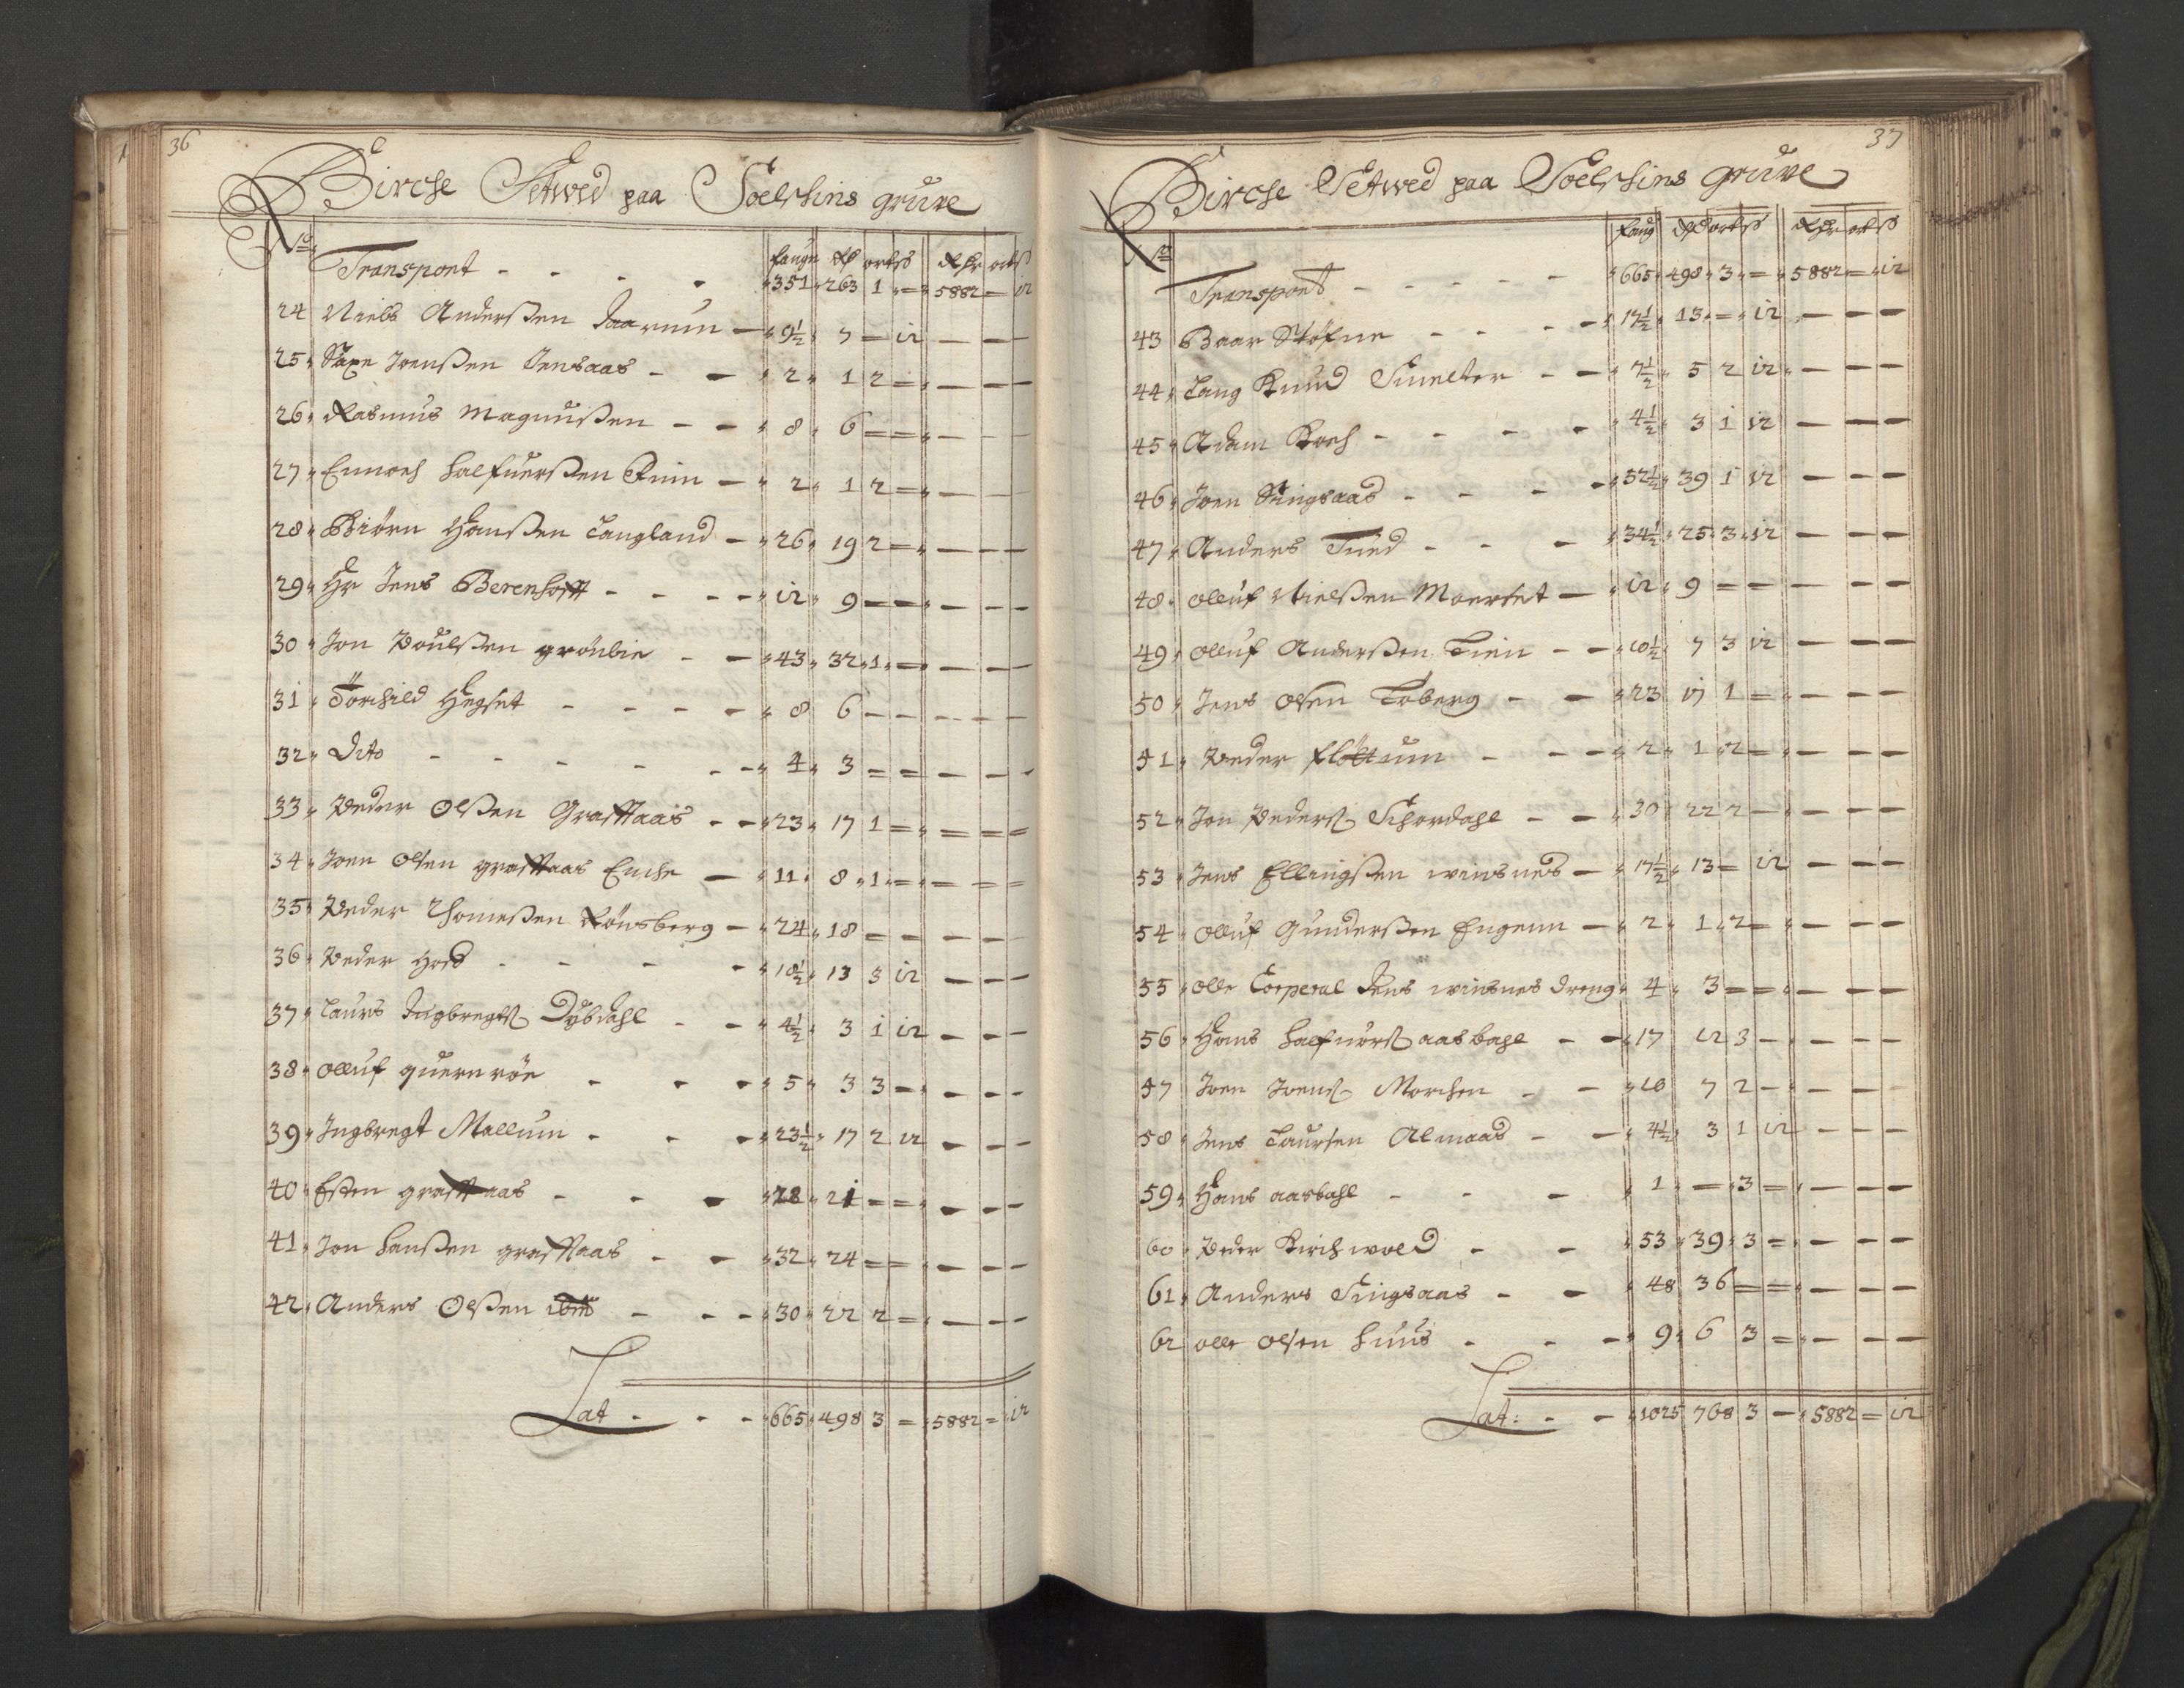 36
Birche Setwed paa Soelskins grube
No
faugn Rd ort ß Rdr ort ß
Transport - - - - 351 263 1 = 5882 = 12
24 Niels Anderßen Aarnun - 9½ 7 - 12 - - -
25 Saxe Joenßen Jensaas - - 2 1 2 = - - -
26 Rasmus Magnußen - - 8 6 = = - - -
27 Ennoch Halfuerßen Finn - 2 1 2 = - - -
28 Biörn Hanßen Langland - 26 19 2 = - - -
29 Hr Jens Berenhoft - - - 12 9 = = - - -
30 Jon Poulßen grönlie - - 43 32 1 = - - -
31 Torchild Hegset - - - - 8 6 - - - - -
32 Dito - - - - - - 4 3 = = - - -
33 Peder Olßen Graffaas - - 23 17 1 = = = =
34 Joen Olsen graffaas Enche - 11 8 1 = = = =
35 Peder Thomeßen Rönsberg - 24 18 = = - - -
36 Peder Hof - - - - 18½ 13 3 12 - - -
37 Laurs Ingbregtß Dybdahl - - 4½ 3 1 12 - - -
38 Olluf quernröe - - - 5 3 3 = - - -
39 Ingbregt Mallum - - - 23½ 17 2 12 - - -
40 Esten graffaas - - - 28 21 = = - - -
41 Jon Hanßen graffaas - - 32 24 = = - - -
42 Anders Olßen ibid - - - 30 22 2 = - - -
Lat - - - 665 498 3 = 5882 = 12
37
Birche Setwed paa Soelskins grube
No
faug Rd ort ß Rdr ort ß
Transport - - - - - 665 498 3 = 5882 = 12
43 Baar Stöfne - - - - 17½ 13 = 12 - - -
44 Lang Knud Smelter - - 7½ 5 2 12 - - -
45 Adam Koch - - - - 4½ 3 1 12 - - -
46 Joen Singsaas - - - - 52½ 39 1 12 - - -
47 Anders Tued - - - 34½ 25 3 12 - - -
48 Olluf Nielßen Moerset - 12 9 = = - - -
49 Olluf Anderßen Lien - - 10½ 7 3 12 - - -
50 Jens Olsen Loberg - - 23 17 1 = - - -
51 Peder flöttum - - - 2 1 2 = - - -
52 Jon Pederß Schordahl - - 30 22 2 - - - -
53 Jens Ellingßen winsnes - 17½ 13 = 12 - - -
54 Olluf Gunderßen Engenn - 2 1 2 = - - -
55 Olle Corperal Jens winsnes dreng 4 3 = = - - -
56 Hans Halfuorß aasbahl - - 17 12 3 - - - -
57 Joen Joenß Morchen - - 10 7 2 - - - -
58 Jens Laursen Almaas - - 4½ 3 1 12 - - -
59 Hans aasbahl - - - 1 - 3 = - - -
60 Peder Kirchwold - - 53 39 3 = - - -
61 Anders Singsaas - - 48 36 = = - - -
62 Olle Olsen Huus - - - 9 6 3 = - - -
Lat: - - 1025 768 3 - 5882 = 12